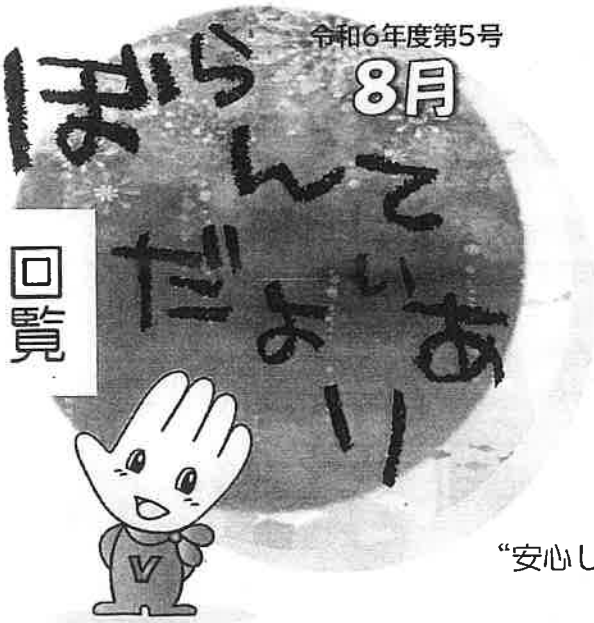 令和6年度第5号
8月
ぼらんてぃあ
だより
回覧
V
“安心し